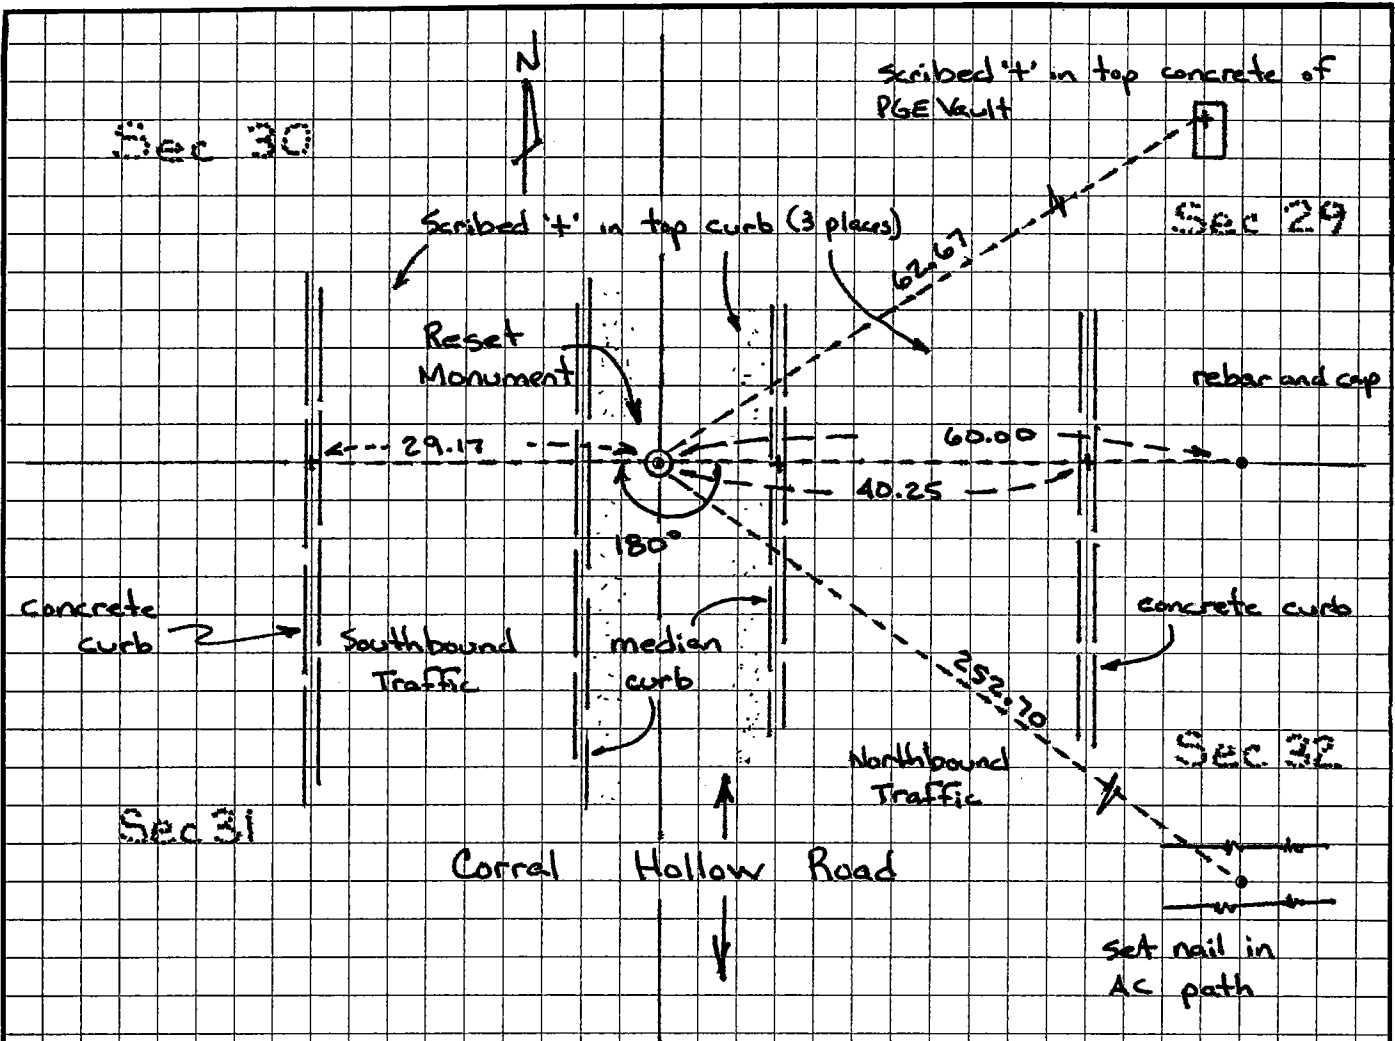 N
scribed '+' in top concrete of
PGE Vault
Sec 30
Sec 29
Scribed '+' in top curb (3 places)
62.67
Reset
Monument
rebar and cap
29.17
60.00
40.25
180°
concrete
curb
Southbound
Traffic
median
curb
concrete curb
252.70
Sec 32
Northbound
Traffic
Sec 31
Corral Hollow Road
set nail in
AC path